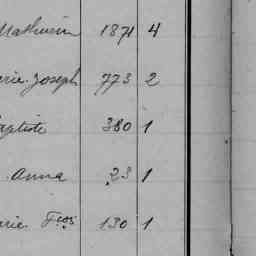 Mathurin 1871 4
rie Joseph 773 2
aptiste 380 1
Anna 23 1
rie Fcois 130 1